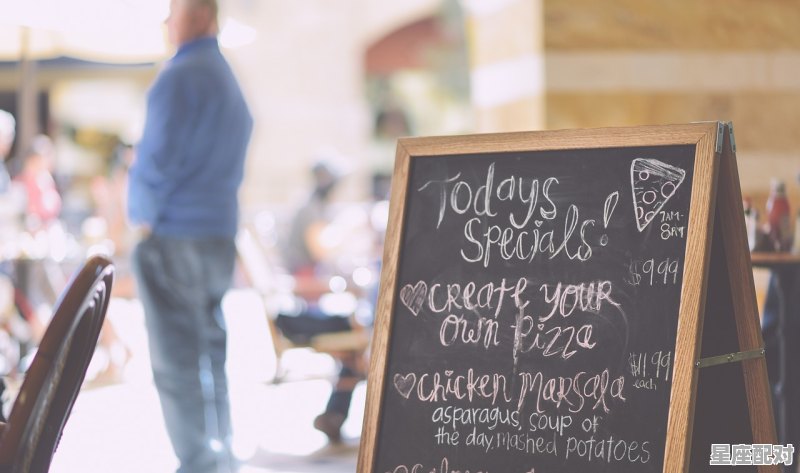 Todays
Specials!
7AM-
8PM
$9.99
♡ CREATE YOUR
OWN PIZZA
$11.99
each
♡ Chicken MARSALA
asparagus, soup of
the day, mashed potatoes
星座配对